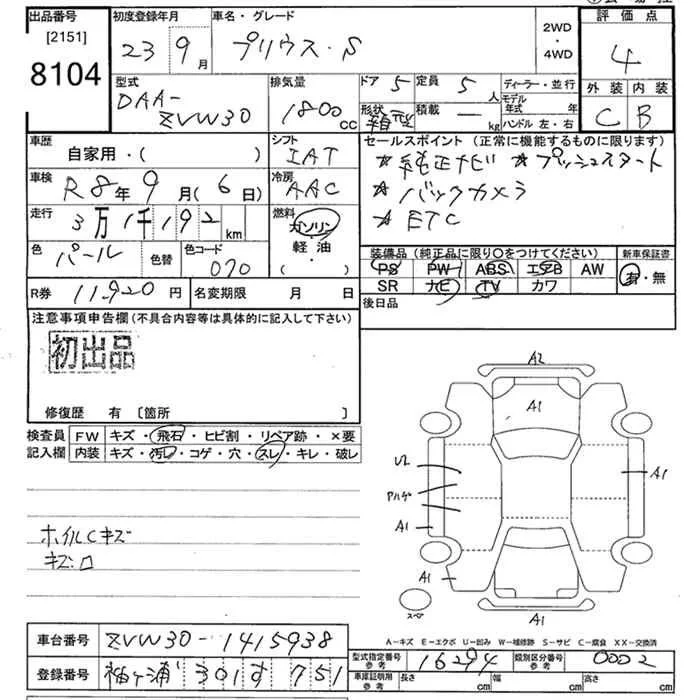 出品番号 [2151] 8104
初度登録年月 23年 9月
車名・グレード プリウス・S
2WD・4WD
評価点 4
外装 内装
C B
型式 DAA-ZVW30
排気量 1800cc
ドア 5 定員 5人
形状 箱型 積載 ー kg
ディーラー・並行
モデル年式 年
ハンドル 左・右
車歴 自家用・( )
シフト IAT
車検 R8年9月(6日)
冷房 AAC
走行 3万1千192km
燃料 ガソリン 軽油 ・( )
色 パール 色替 色コード 070
R券 11,920円 名変期限 月 日
セールスポイント (正常に機能するものに限ります)
☆純正ナビ ☆プッシュスタート
☆バックカメラ
☆ETC
装備品 (純正品に限り〇をつけてください) 新車保証書
PS PW ABS エアB AW 有・無
SR ナビ TV カワ
後日品
注意事項申告欄 (不具合内容等は具体的に記入して下さい)
初出品
修復歴 有 〔箇所 〕
検査員記入欄
FW キズ・飛石・ヒビ割・リペア跡・×要
内装 キズ・汚レ・コゲ・穴・スレ・キレ・破レ
ホイルCキズ
キズロ
A2
A1
U2
Pハゲ
A1
A1
A1
A1
スペア
A-キズ E-エクボ U-凹み W-補修跡 S-サビ C-腐食 XX-交換済
車台番号 ZVW30-1415938
登録番号 袖ヶ浦 301 す 751
型式指定番号 参考 16294 類別区分番号 参考 0002
車庫証明用 参考 長さ cm 幅 cm 高さ cm